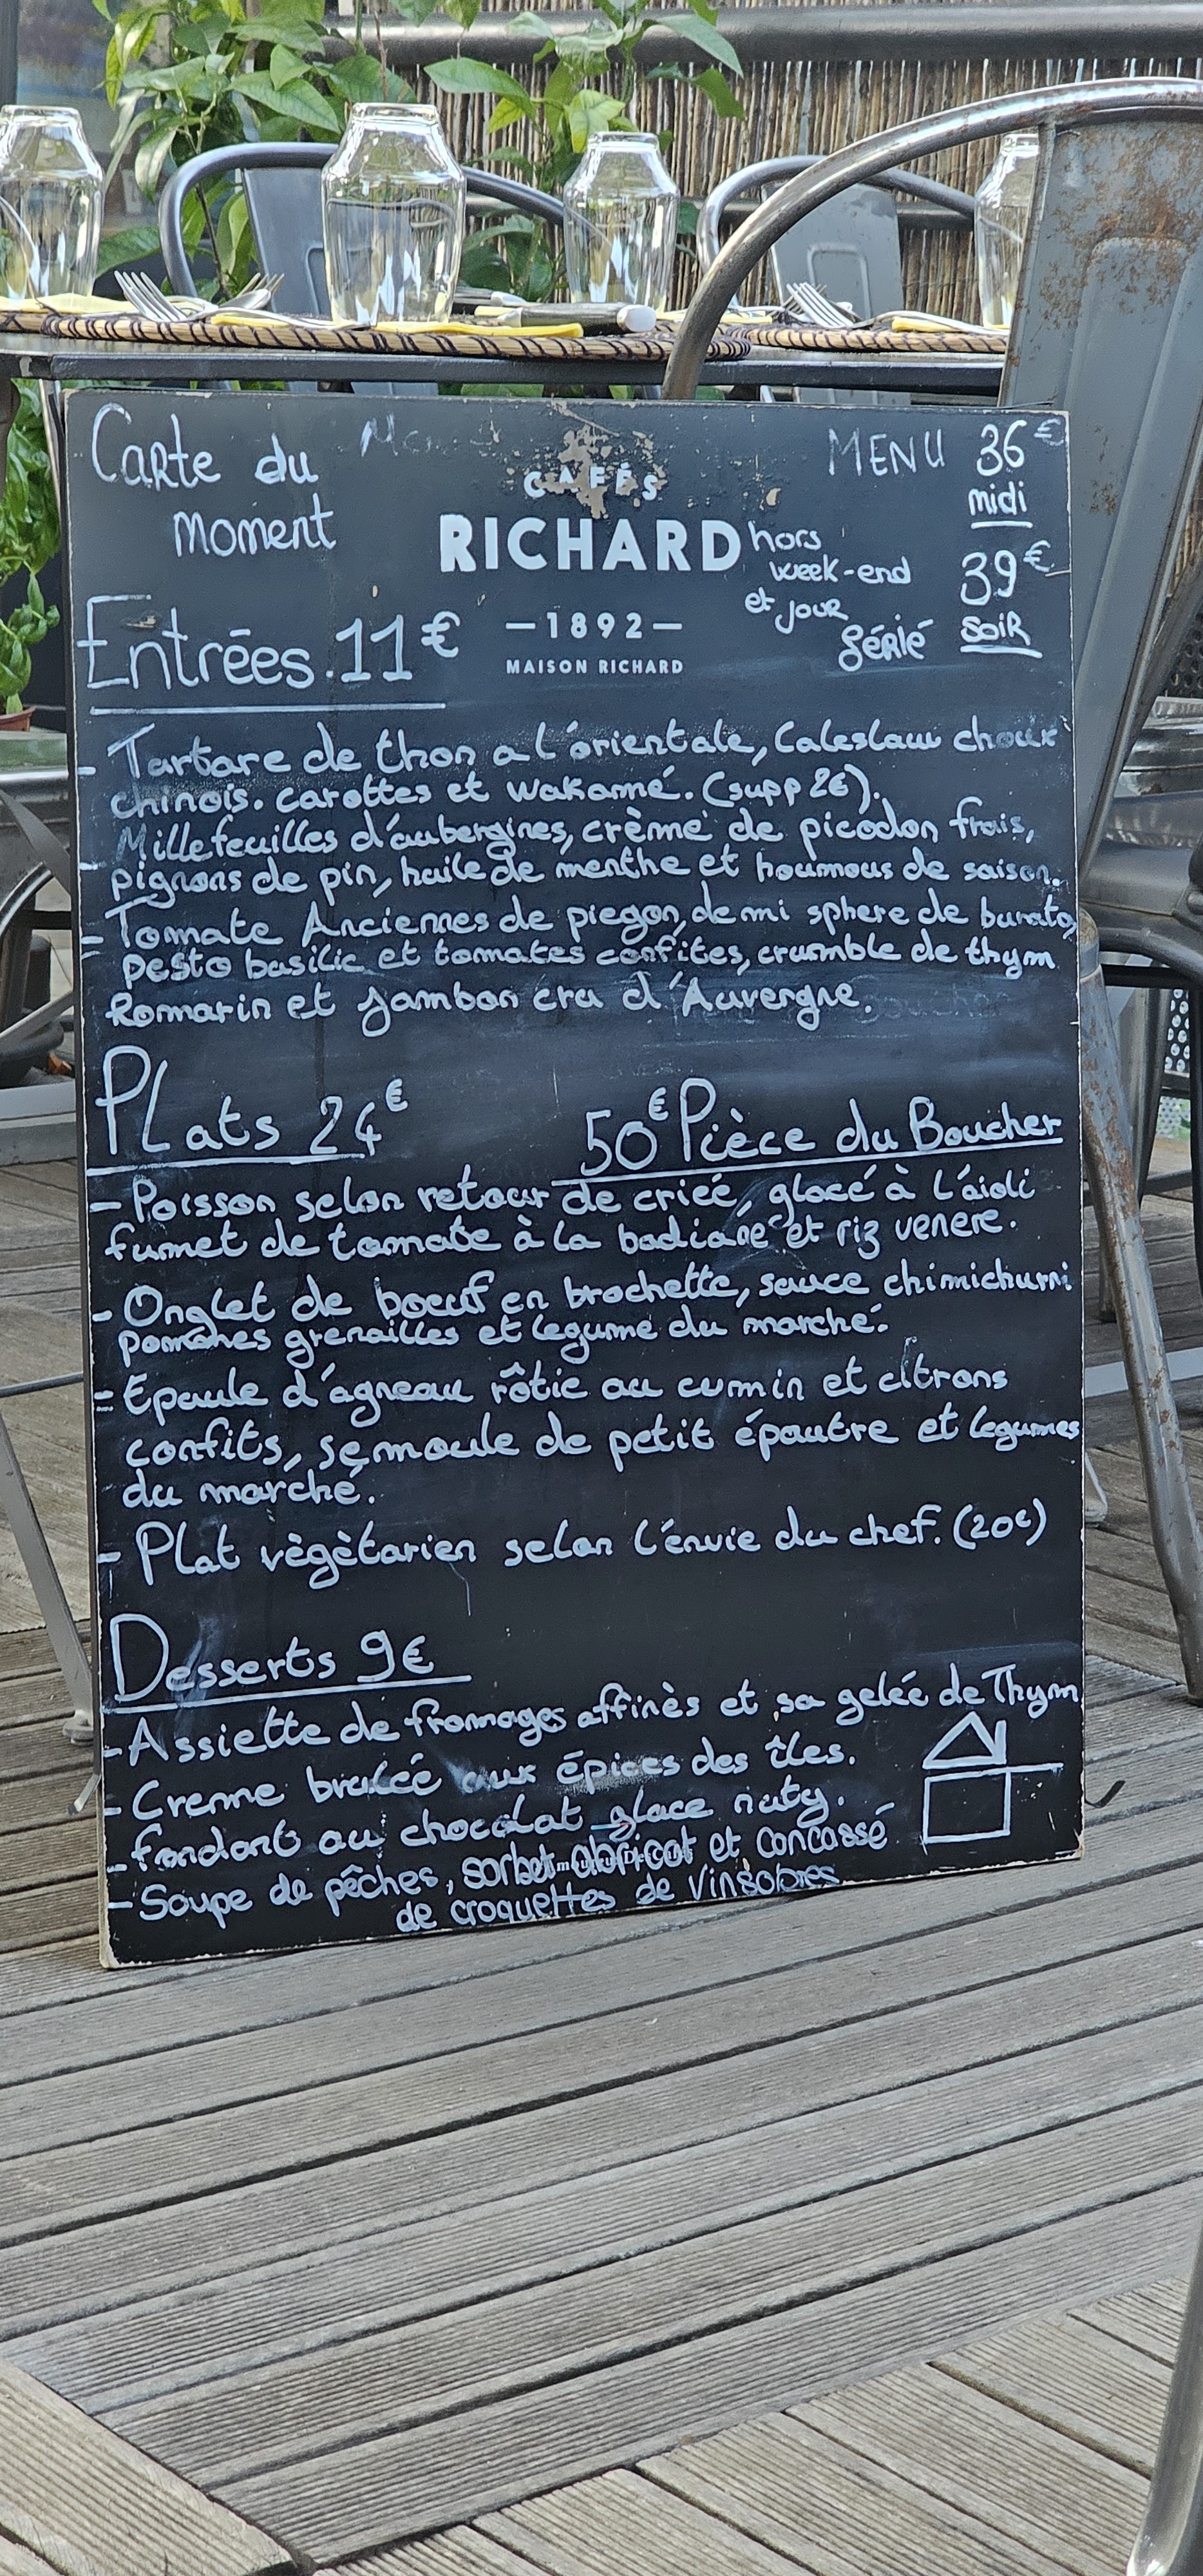 Carte du
moment
CAFÉS
RICHARD
—1892—
MAISON RICHARD
MENU 36€
midi
hors
week-end
et jour
férié
39€
soir
Entrées.11€
- Tartare de thon a l'orientale, Caleslaw choux
chinois. carottes et wakamé. (supp 2€).
- Millefeuilles d'aubergines, crème de picodon frais,
pignons de pin, huile de menthe et houmous de saison.
- Tomate Anciennes de piegon, demi sphere de burata,
pesto basilic et tomates confites, crumble de thym
Romarin et jambon cru d'Auvergne.
Plats 24€
50€ Pièce du Boucher
- Poisson selon retour de criée, glacé à l'aioli
fumet de tomate à la badiane et riz venere.
- Onglet de boeuf en brochette, sauce chimichurri
pommes grenailles et legume du marché.
- Epaule d'agneau rôtie au cumin et citrons
confits, semoule de petit épautre et legumes
du marché.
- Plat vègètarien selon l'envie du chef. (20€)
Desserts 9€
- Assiette de fromages affinès et sa gelée de Thym
- Creme brulée aux épices des îles.
- fondant au chocolat glace nuty.
- Soupe de pêches, sorbet abricot et concassé
de croquettes de Vinsobres